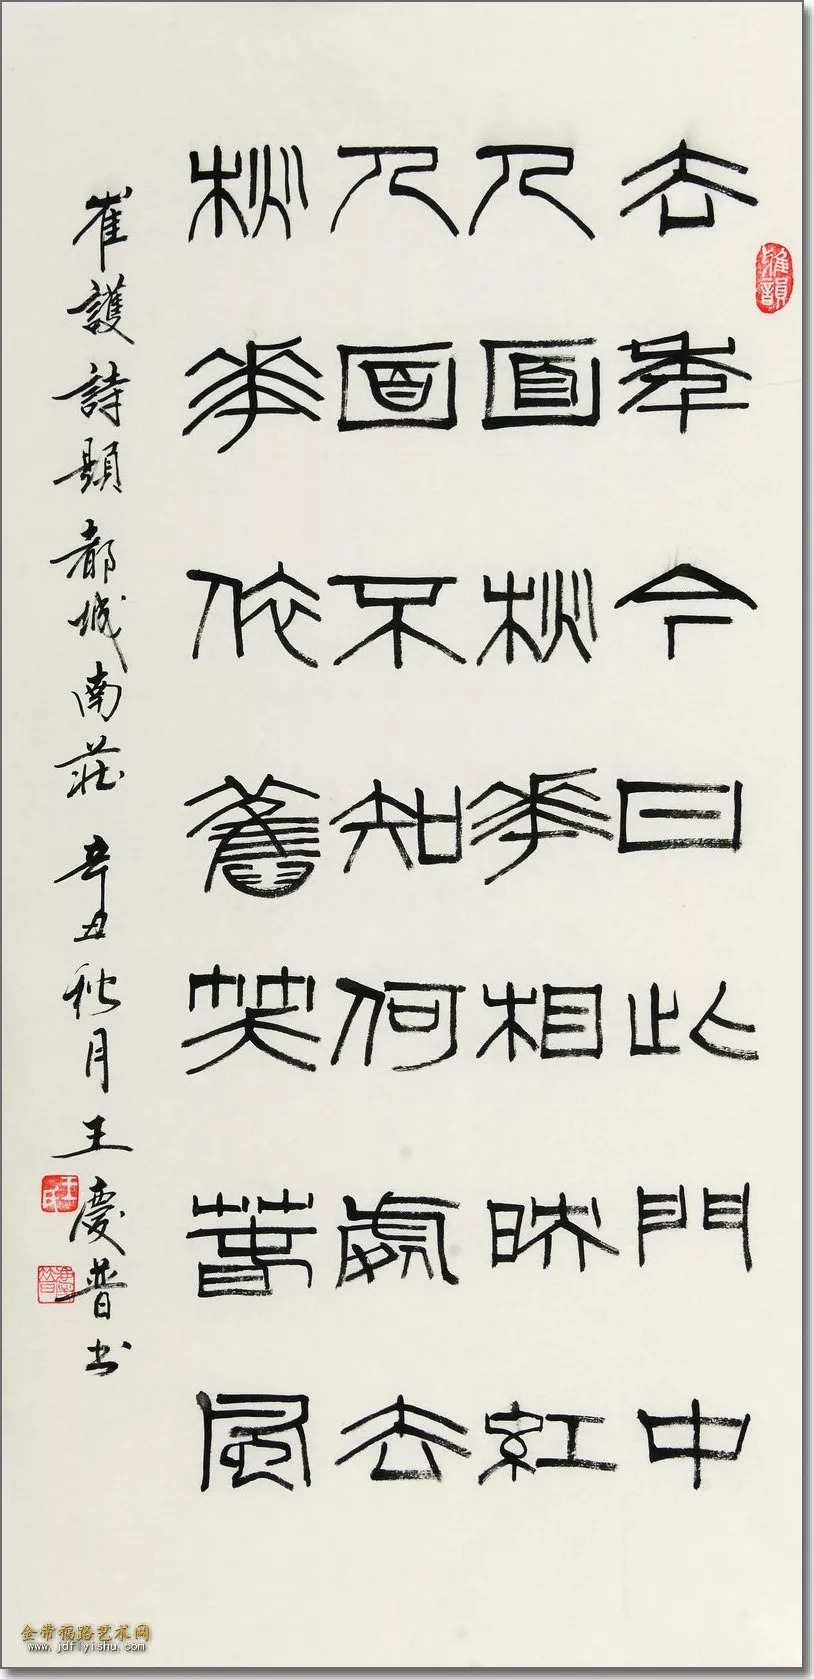 雅韻
去年今日此門中
人面桃花相映紅
人面不知何處去
桃花依舊笑春風
崔護詩題都城南莊 辛丑秋月王慶普书
王氏
慶普
金带福路艺术网
www.jdflyishu.com